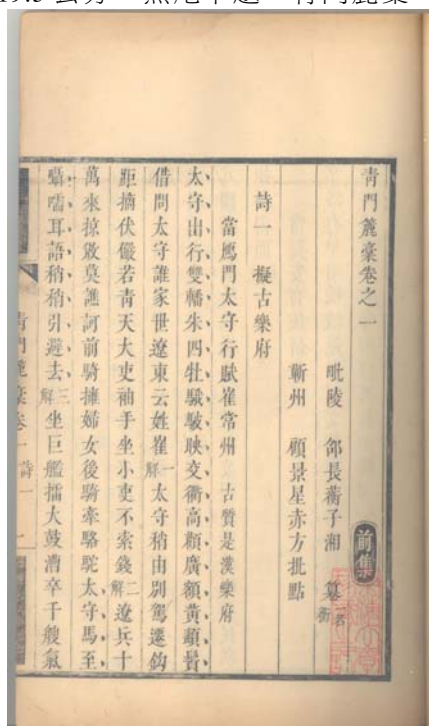 青門簏稾卷之一
前集
毗陵 邵長蘅子湘 纂 一名衡
蘄州 顧景星赤方批點
詩一 擬古樂府
當鴈門太守行賦崔常州 古質是漢樂府
太守出行雙幡朱四牡騤騤映交衢高顴廣額黃頿鬚
借問太守誰家世遼東云姓崔一解太守稍由別駕遷鈎
距摘伏儼若青天大吏袖手坐小吏不索錢二解遼兵十
萬來掠敓莫譙訶前騎擁婦女後騎牽駱駝太守馬至
囁嚅耳語稍稍引避去三解坐巨艦擂大鼓漕卒千艘氣
青門簏稾卷一 詩一